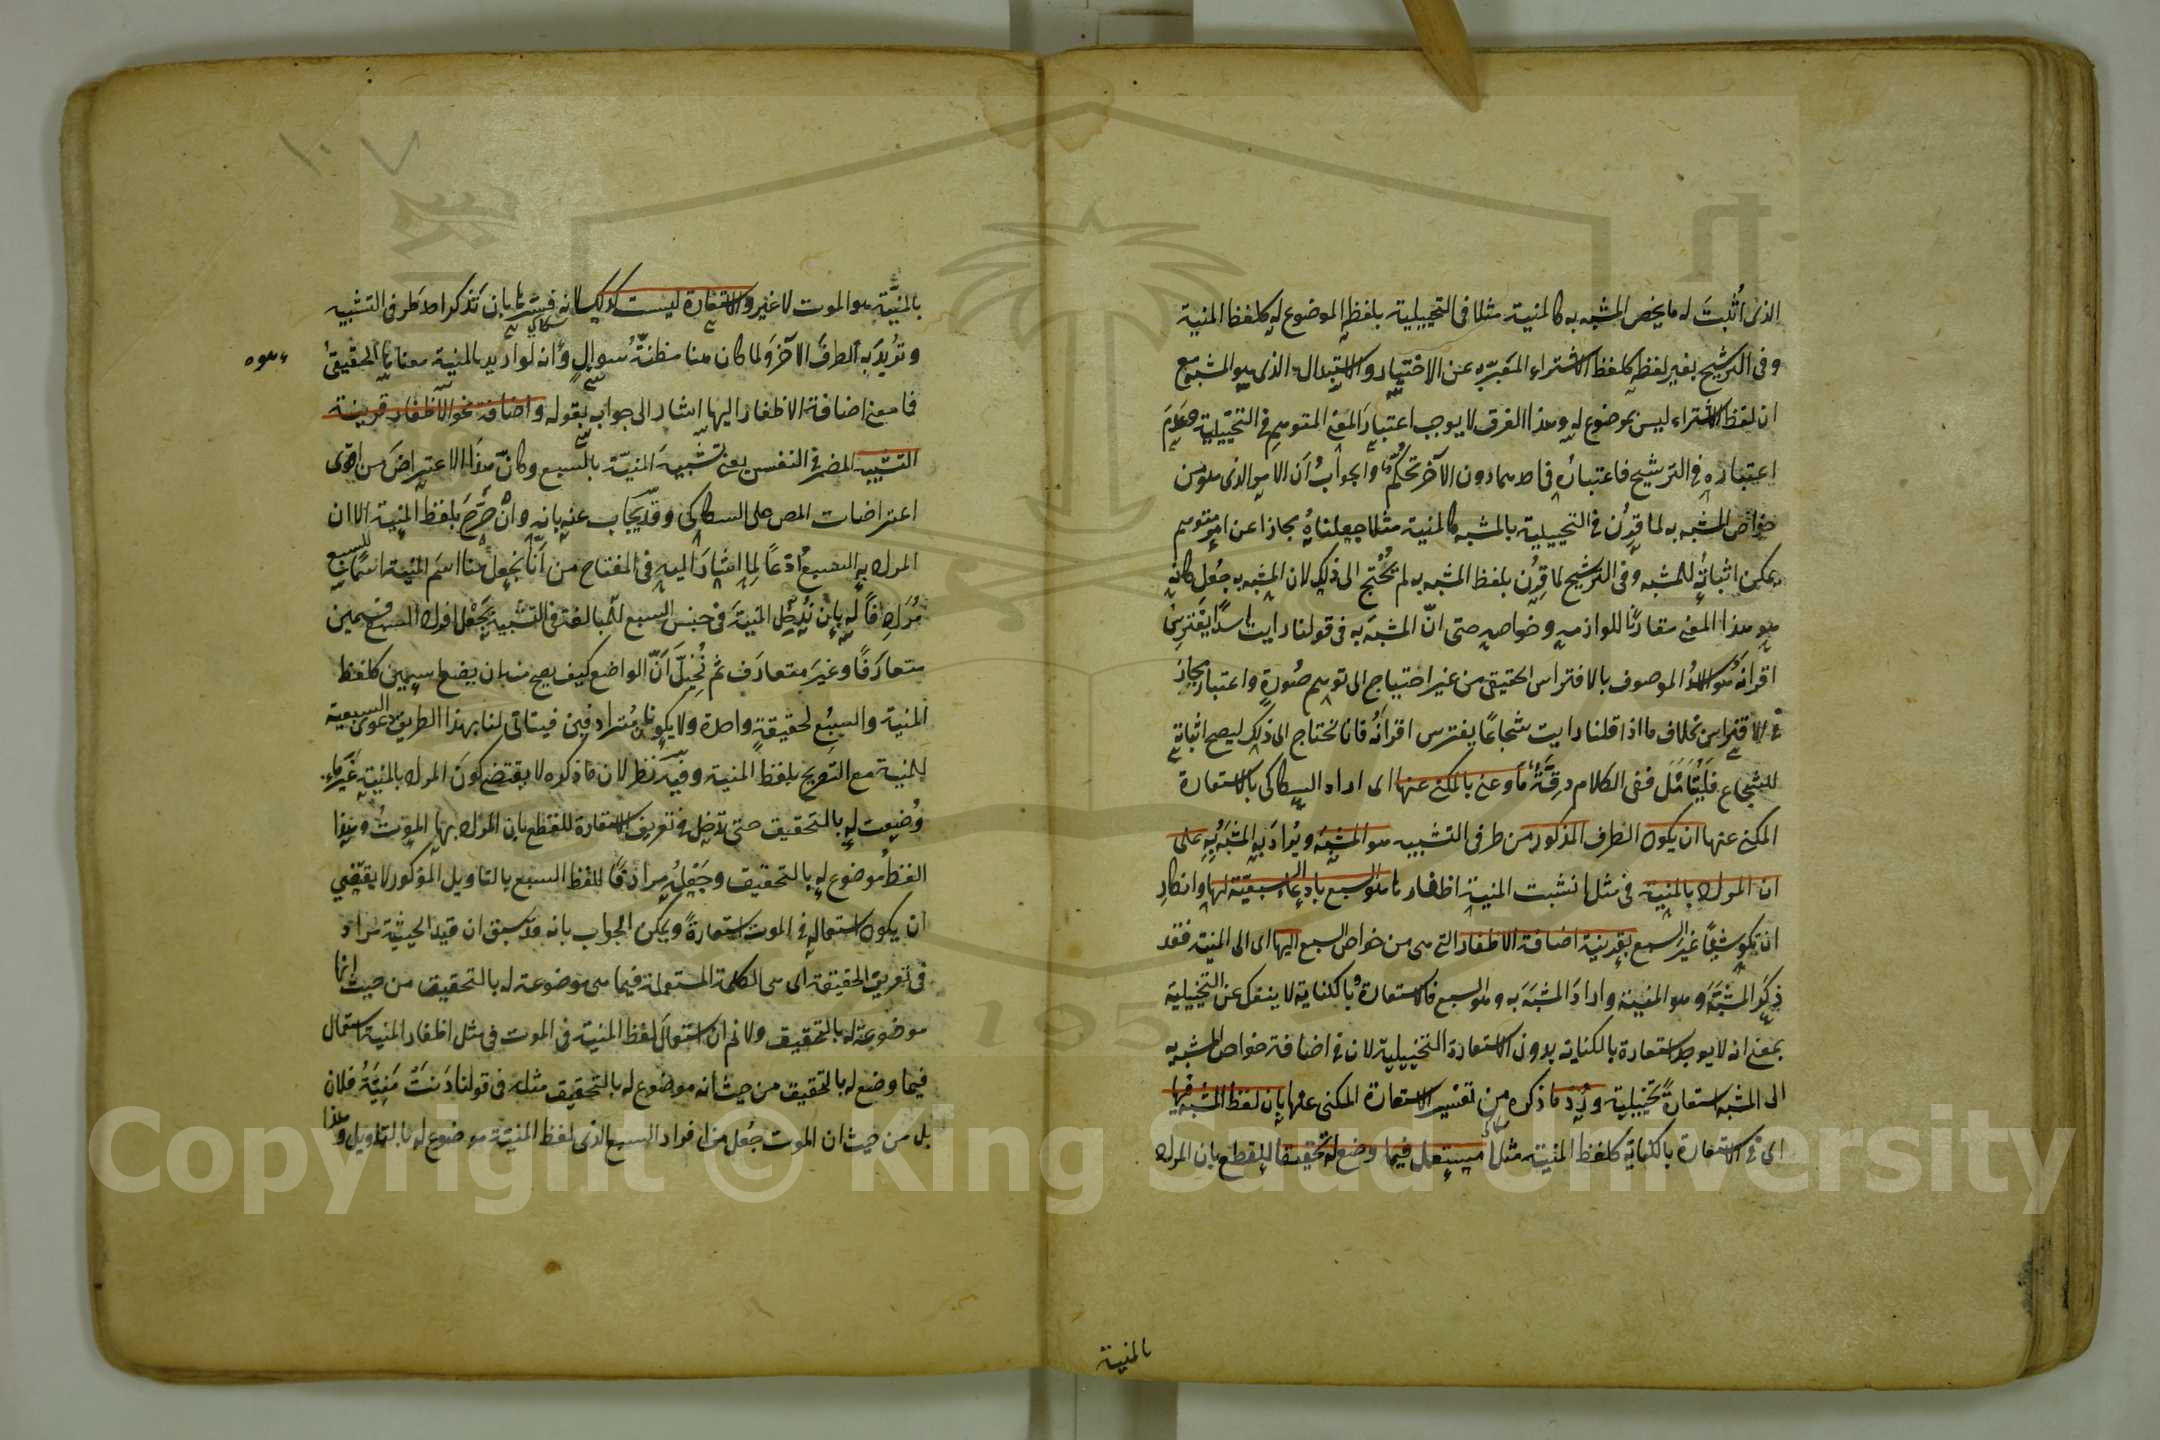 الذى اُثبتَ له ما يخص المشبه به كالمنية مثلا فى التخييلية بلفظه الموضوع له كلفظ المنية
وفى الترشيح بغير لفظه كلفظ الاشتراء المعبّر به عن الاختيار والاستبدال الذى هو المشبه مع
ان لفظ الاشتراء ليس بموضوع له وهذا الفرق لا يوجب اعتبار المعنى المتوهم فى التخييلية وعدم
اعتباره فى الترشيح فاعتباره فى احدهما دون الآخر تحكّم والجواب ان الامر الذى هو من
خواص المشبه به لما قرن فى التخييلية بالمشبه كالمنية مثلا جعلناه مجازا عن امر متوهم
يمكن اثباته للمشبه وفى الترشيح لما قرن بلفظ المشبه به لم يُحتَج الى ذلك لان المشبه به جُعل كانه
هو هذا المعنى مقارنًا للوازمه وخواصه حتى انّ المشبه به فى قولنا رايت اسدًا يفترس
اقرانه هو الاسد الموصوف بالافتراس الحقيقى من غير احتياج الى توهم صورة واعتبار مجاز
فى الافتراس بخلاف ما اذا قلنا رايت شجاعًا يفترس اقرانه فانا نحتاج الى ذلك ليصح اثباته
للشجاع فليُتَامّل ففى الكلام دقّةٌ ما وعنى بالمكنى عنها اى اراد السكاكى بالاستعارة
المكنى عنها ان يكون الطرف المذكور من طرفى التشبيه هو المشبه ويُراد به المشبه به على
ان المراد بالمنية فى مثل انشبت المنية اظفارها هو السبع بادعاء السبعيّة لها وانكار
ان يكون شيئًا غير السبع بقرينة اضافة الاظفار التى هى من خواص السبع اليها اى الى المنية فقد
ذكر المشبّه وهو المنية واراد المشبه به وهو السبع فالاستعارة بالكناية لا ينفك عن التخييلية
بمعنى انه لا يوجد استعارة بالكناية بدون الاستعارة التخييلية لان فى اضافة خواص المشبه به
الى المشبه استعارةً تخييلية ورُدّ ما ذكره من تفسير الاستعارة المكنى عنها بان لفظ المشبه فيها
اى فى الاستعارة بالكناية كلفظ المنية مثلاً مستعمل فيما وضع له تحقيقا للقطع بان المراد
بالمنية
بالمنيّة هو الموت لا غير والاستعارة ليست كذلك لانه فسّرها بان تذكر احد طرفى التشبيه
وتُريد به الطرف الآخر ولما كان هنا مظنةُ سُوالٍ وانه لو اريد بالمنية معناها الحقيقىُّ
فما معنى اضافة الاظفار اليها اشار الى جواب بقوله واضافة نحو الاظفار قرينة
التشبيه المضمر فى النفس يعنى تشبيه المنيّة بالسبع وكانّ هذا الاعتراض من اقوى
اعتراضات المص على السكاكى وقد يُجَاب عنه بانه وانْ صُرّح بلفظ المنية الا ان
المراد به السبع ادّعاءً لما اشار اليه فى المفتاح من انا نجعل هنا اسم المنية اسمًا للسبع
مُرادفًا له بان ندخل المنية فى جنس السبع للمبالغة فى التشبيه بجعل افراد السبع قسمين
متعارَفًا وغير متعارَف ثم نُخيلَ انّ الواضع كيف يصح منه ان يضع اسمين كلفظ
المنية والسبع لحقيقةٍ واحدة ولا يكونان مُترادفين فيتاتّى لنا بهذا الطريق دعوى السبعية
للمنية مع التصريح بلفظ المنية وفيه نظر لان ما ذكره لا يقتضى كون المراد بالمنية غير ما
وُضعت له بالتحقيق حتى تدخل فى تعريف الاستعارة للقطع بان المراد بها الموت وهذا
اللفظ موضوع له بالتحقيق وجَعْلُه مرادفًا للفظ السبع بالتاويل المذكور لا يقتضى
ان يكون استعماله فى الموت استعارةً ويمكن الجواب بانه قد سبق ان قيد الحيثية مُراد
فى تعريف الحقيقة اى هى الكلمة المستعملة فيما هى موضوعة له بالتحقيق من حيث انها
موضوعة له بالتحقيق ولا نم ان استعمال لفظ المنية فى الموت فى مثل اظفار المنية استعمال
فيما وضع له بالتحقيق من حيث انه موضوع له بالتحقيق مثله فى قولنا دَنَتْ مَنِيّةُ فلان
بل من حيث ان الموت جُعل من افراد السبع الذى لفظ المنيّة موضوع له بالتاويل وهذا